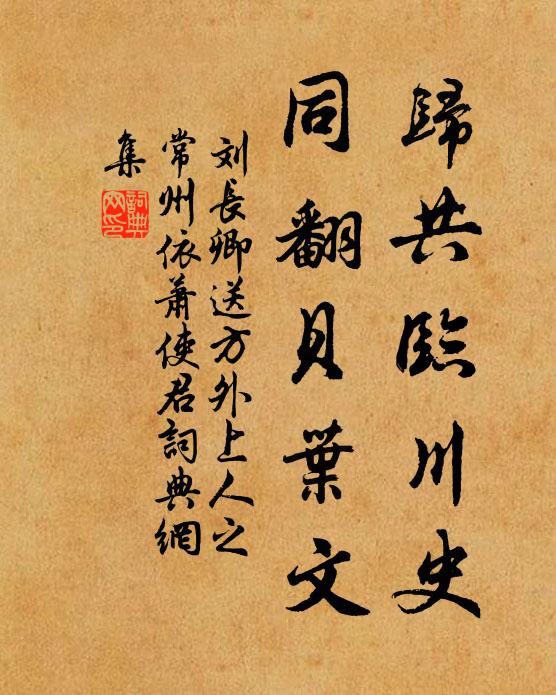 歸共臨川史
同翻貝葉文
刘長卿送方外上人之
常州依蕭使君詞典網
集
詞典
网印